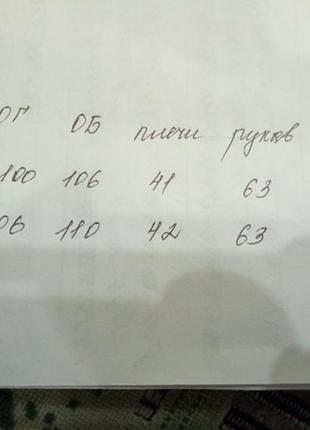 ОГ ОБ плечи рукав
100 106 41 63
06 110 42 63